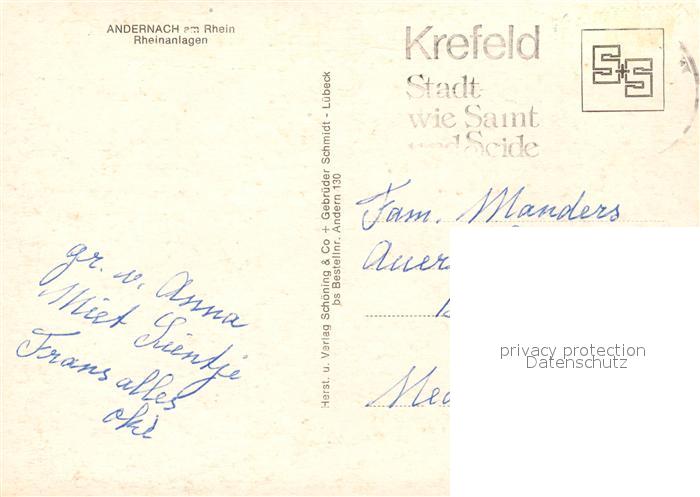 ANDERNACH am Rhein
Rheinanlagen
Krefeld
Stadt
wie Samt
und Seide
S+S
Herst. u. Verlag Schöning & Co + Gebrüder Schmidt - Lübeck
bs Bestellnr. Andern 130
Fam. Manders
Auer
gr. v. Anna
Miet Sientje
Frans alles
oké
Med
privacy protection
Datenschutz